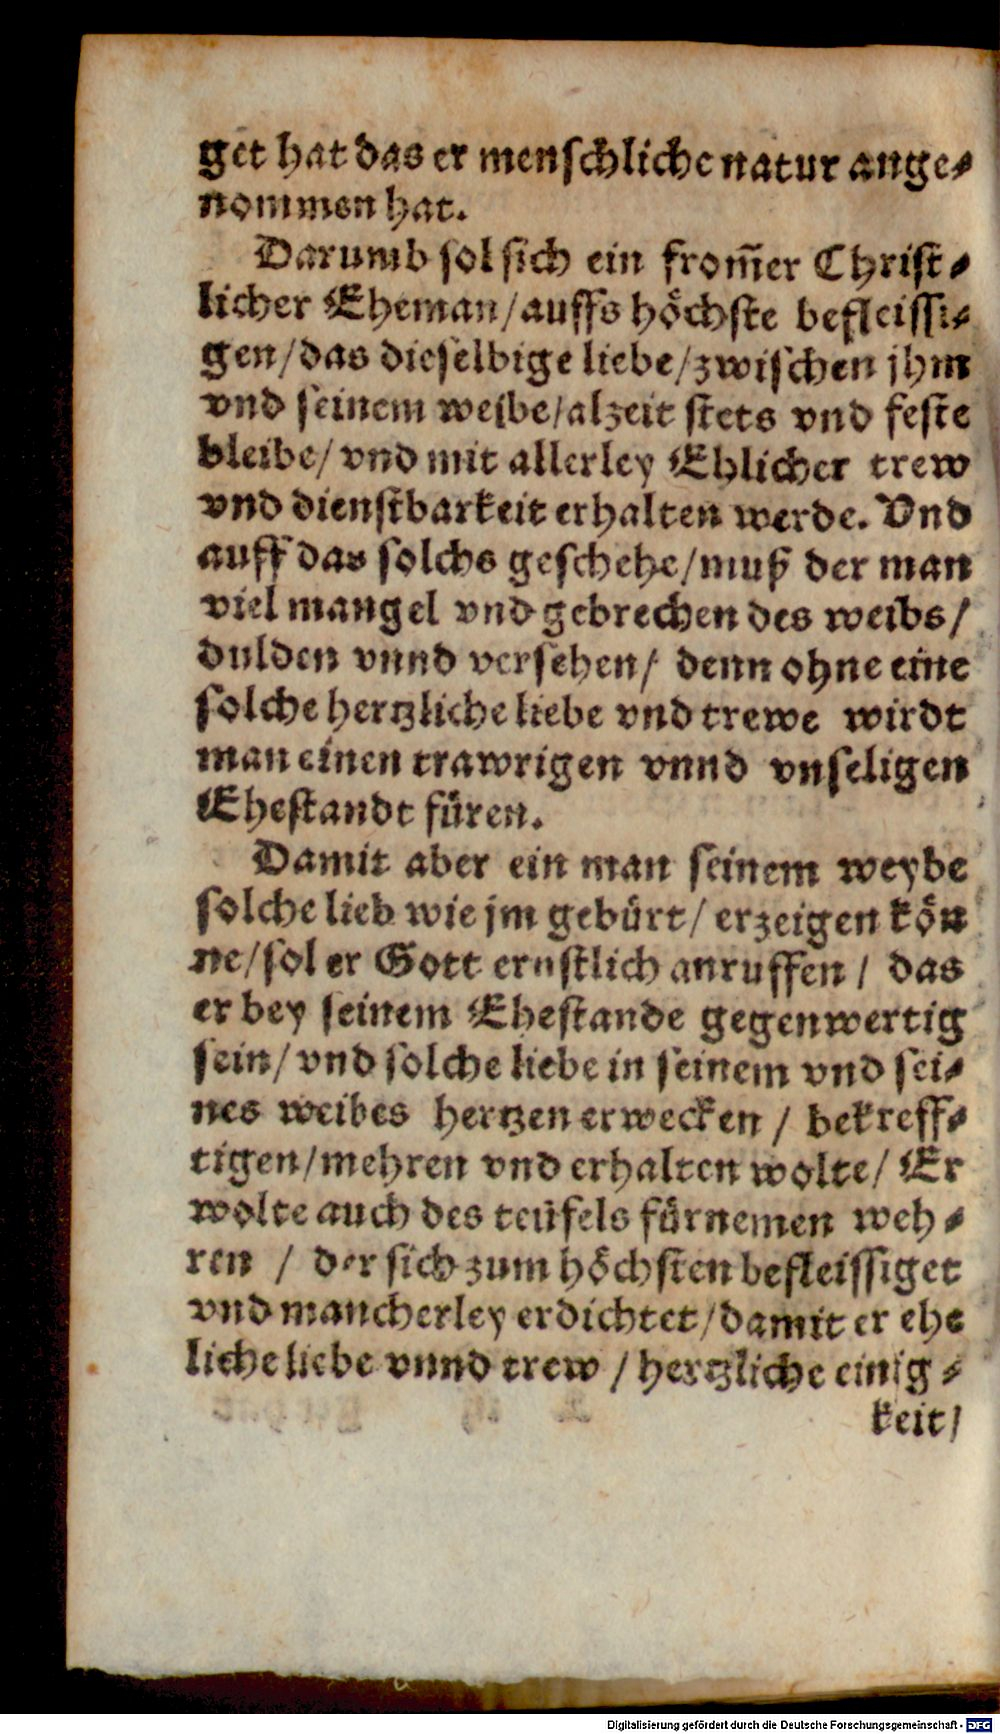 get hat das er menschliche natur ange⸗
nommen hat.
Darumb sol sich ein from̄er Christ⸗
licher Eheman/auffs höchste befleissi⸗
gen/das dieselbige liebe/zwischen jhm
vnd seinem weibe/alzeit stets vnd feste
bleibe/ vnd mit allerley Ehlicher trew
vnd dienstbarkeit erhalten werde. Vnd
auff das solchs geschehe/muß der man
viel mangel vnd gebrechen des weibs/
dulden vnnd versehen/ denn ohne eine
solche hertzliche liebe vnd trewe wirdt
man einen trawrigen vnnd vnseligen
Ehestandt füren.
Damit aber ein man seinem weybe
solche lieb wie jm gebürt/ erzeigen kön
ne/sol er Gott ernstlich anruffen/ das
er bey seinem Ehestande gegenwertig
sein/ vnd solche liebe in seinem vnd sei⸗
nes weibes hertzen erwecken / bekreff⸗
tigen/mehren vnd erhalten wolte/ Er
wolte auch des teufels fürnemen weh⸗
ren / der sich zum höchsten befleissiget
vnd mancherley erdichtet/damit er ehe
liche liebe vnnd trew / hertzliche einig⸗
keit/
Digitalisierung gefördert durch die Deutsche Forschungsgemeinschaft - DFG